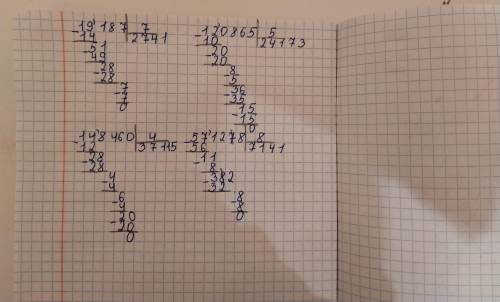 19187 | 7
-14 2741
-51
49
-28
-28
-7
7
0
-120865 | 5
10 24173
-20
-20
-8
5
-36
-35
-15
-15
0
148460 | 4
-12 37115
-28
-28
-4
4
-6
4
-20
20
0
-571278 | 8
56 7141
-11
8
-32
-8
8
0